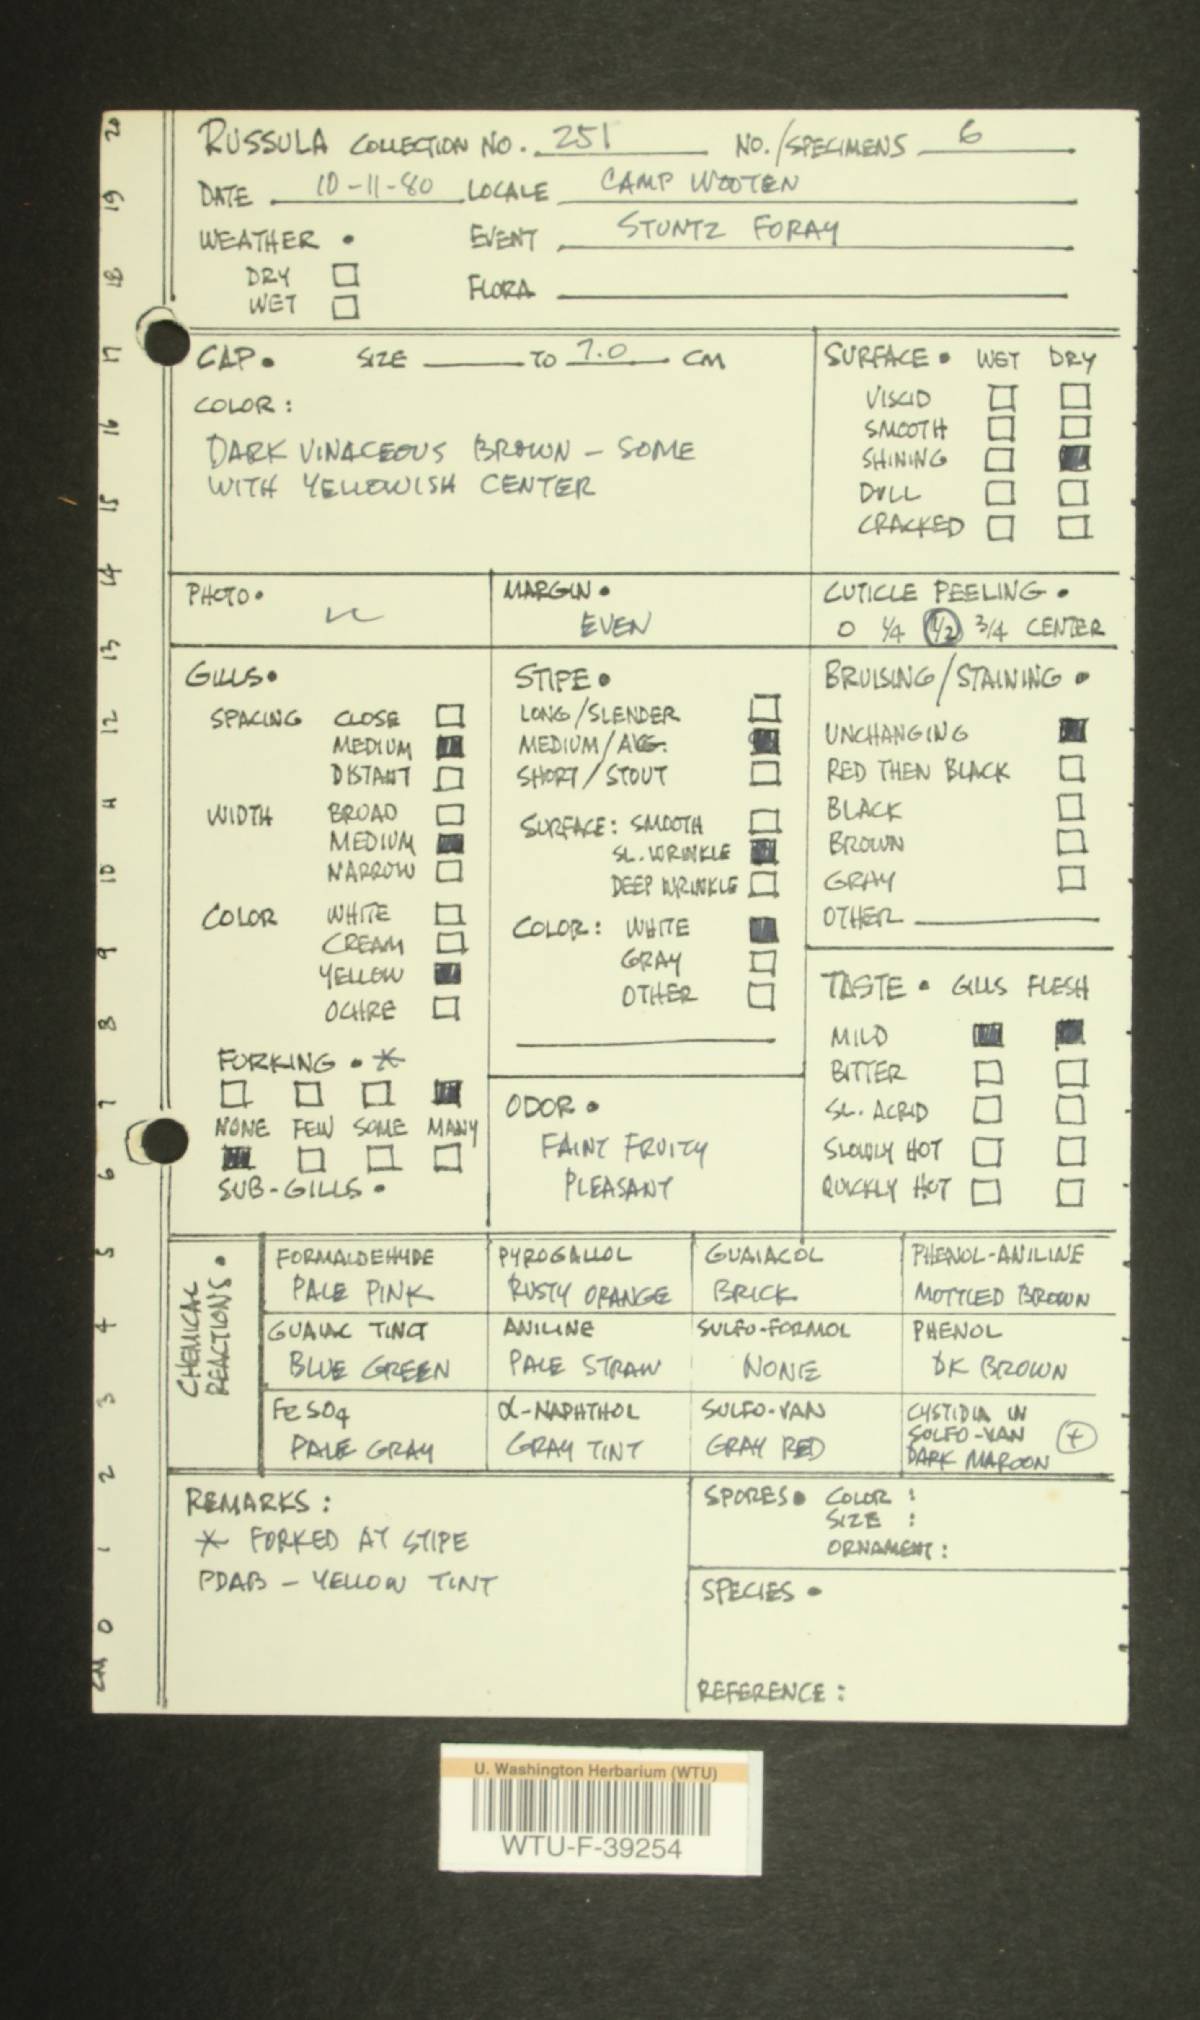 RUSSULA COLLECTION NO. 251 NO./SPECIMENS 6
DATE 10-11-80 LOCALE CAMP WOOTEN
WEATHER • EVENT STUNTZ FORAY
DRY
WET
FLORA
CAP • SIZE TO 7.0 CM
COLOR:
DARK VINACEOUS BROWN - SOME
WITH YELLOWISH CENTER
SURFACE • WET DRY
VISCID
SMOOTH
SHINING
DULL
CRACKED
PHOTO •
MARGIN •
EVEN
CUTICLE PEELING •
0 1/4 1/2 3/4 CENTER
GILLS •
SPACING CLOSE
MEDIUM
DISTANT
WIDTH BROAD
MEDIUM
NARROW
COLOR WHITE
CREAM
YELLOW
OCHRE
FORKING • *
NONE FEW SOME MANY
SUB-GILLS •
STIPE •
LONG/SLENDER
MEDIUM/AVG.
SHORT/STOUT
SURFACE: SMOOTH
SL. WRINKLE
DEEP WRINKLE
COLOR: WHITE
GRAY
OTHER
ODOR •
FAINT FRUITY
PLEASANT
BRUISING/STAINING •
UNCHANGING
RED THEN BLACK
BLACK
BROWN
GRAY
OTHER
TASTE • GILLS FLESH
MILD
BITTER
SL. ACRID
SLOWLY HOT
QUICKLY HOT
CHEMICAL
REACTIONS •
FORMALDEHYDE
PALE PINK
PYROGALLOL
RUSTY ORANGE
GUAIACOL
BRICK
PHENOL-ANILINE
MOTTLED BROWN
GUAIAC TINCT
BLUE GREEN
ANILINE
PALE STRAW
SULFO-FORMOL
NONE
PHENOL
DK BROWN
FeSO4
PALE GRAY
α-NAPHTHOL
GRAY TINT
SULFO-VAN
GRAY RED
CYSTIDIA IN
SULFO-VAN +
DARK MAROON
REMARKS:
* FORKED AT STIPE
PDAB - YELLOW TINT
SPORES • COLOR:
SIZE:
ORNAMENT:
SPECIES •
REFERENCE:
20
19
18
17
16
15
14
13
12
11
10
9
8
7
6
5
4
3
2
1
0
CM
U. Washington Herbarium (WTU)
WTU-F-39254